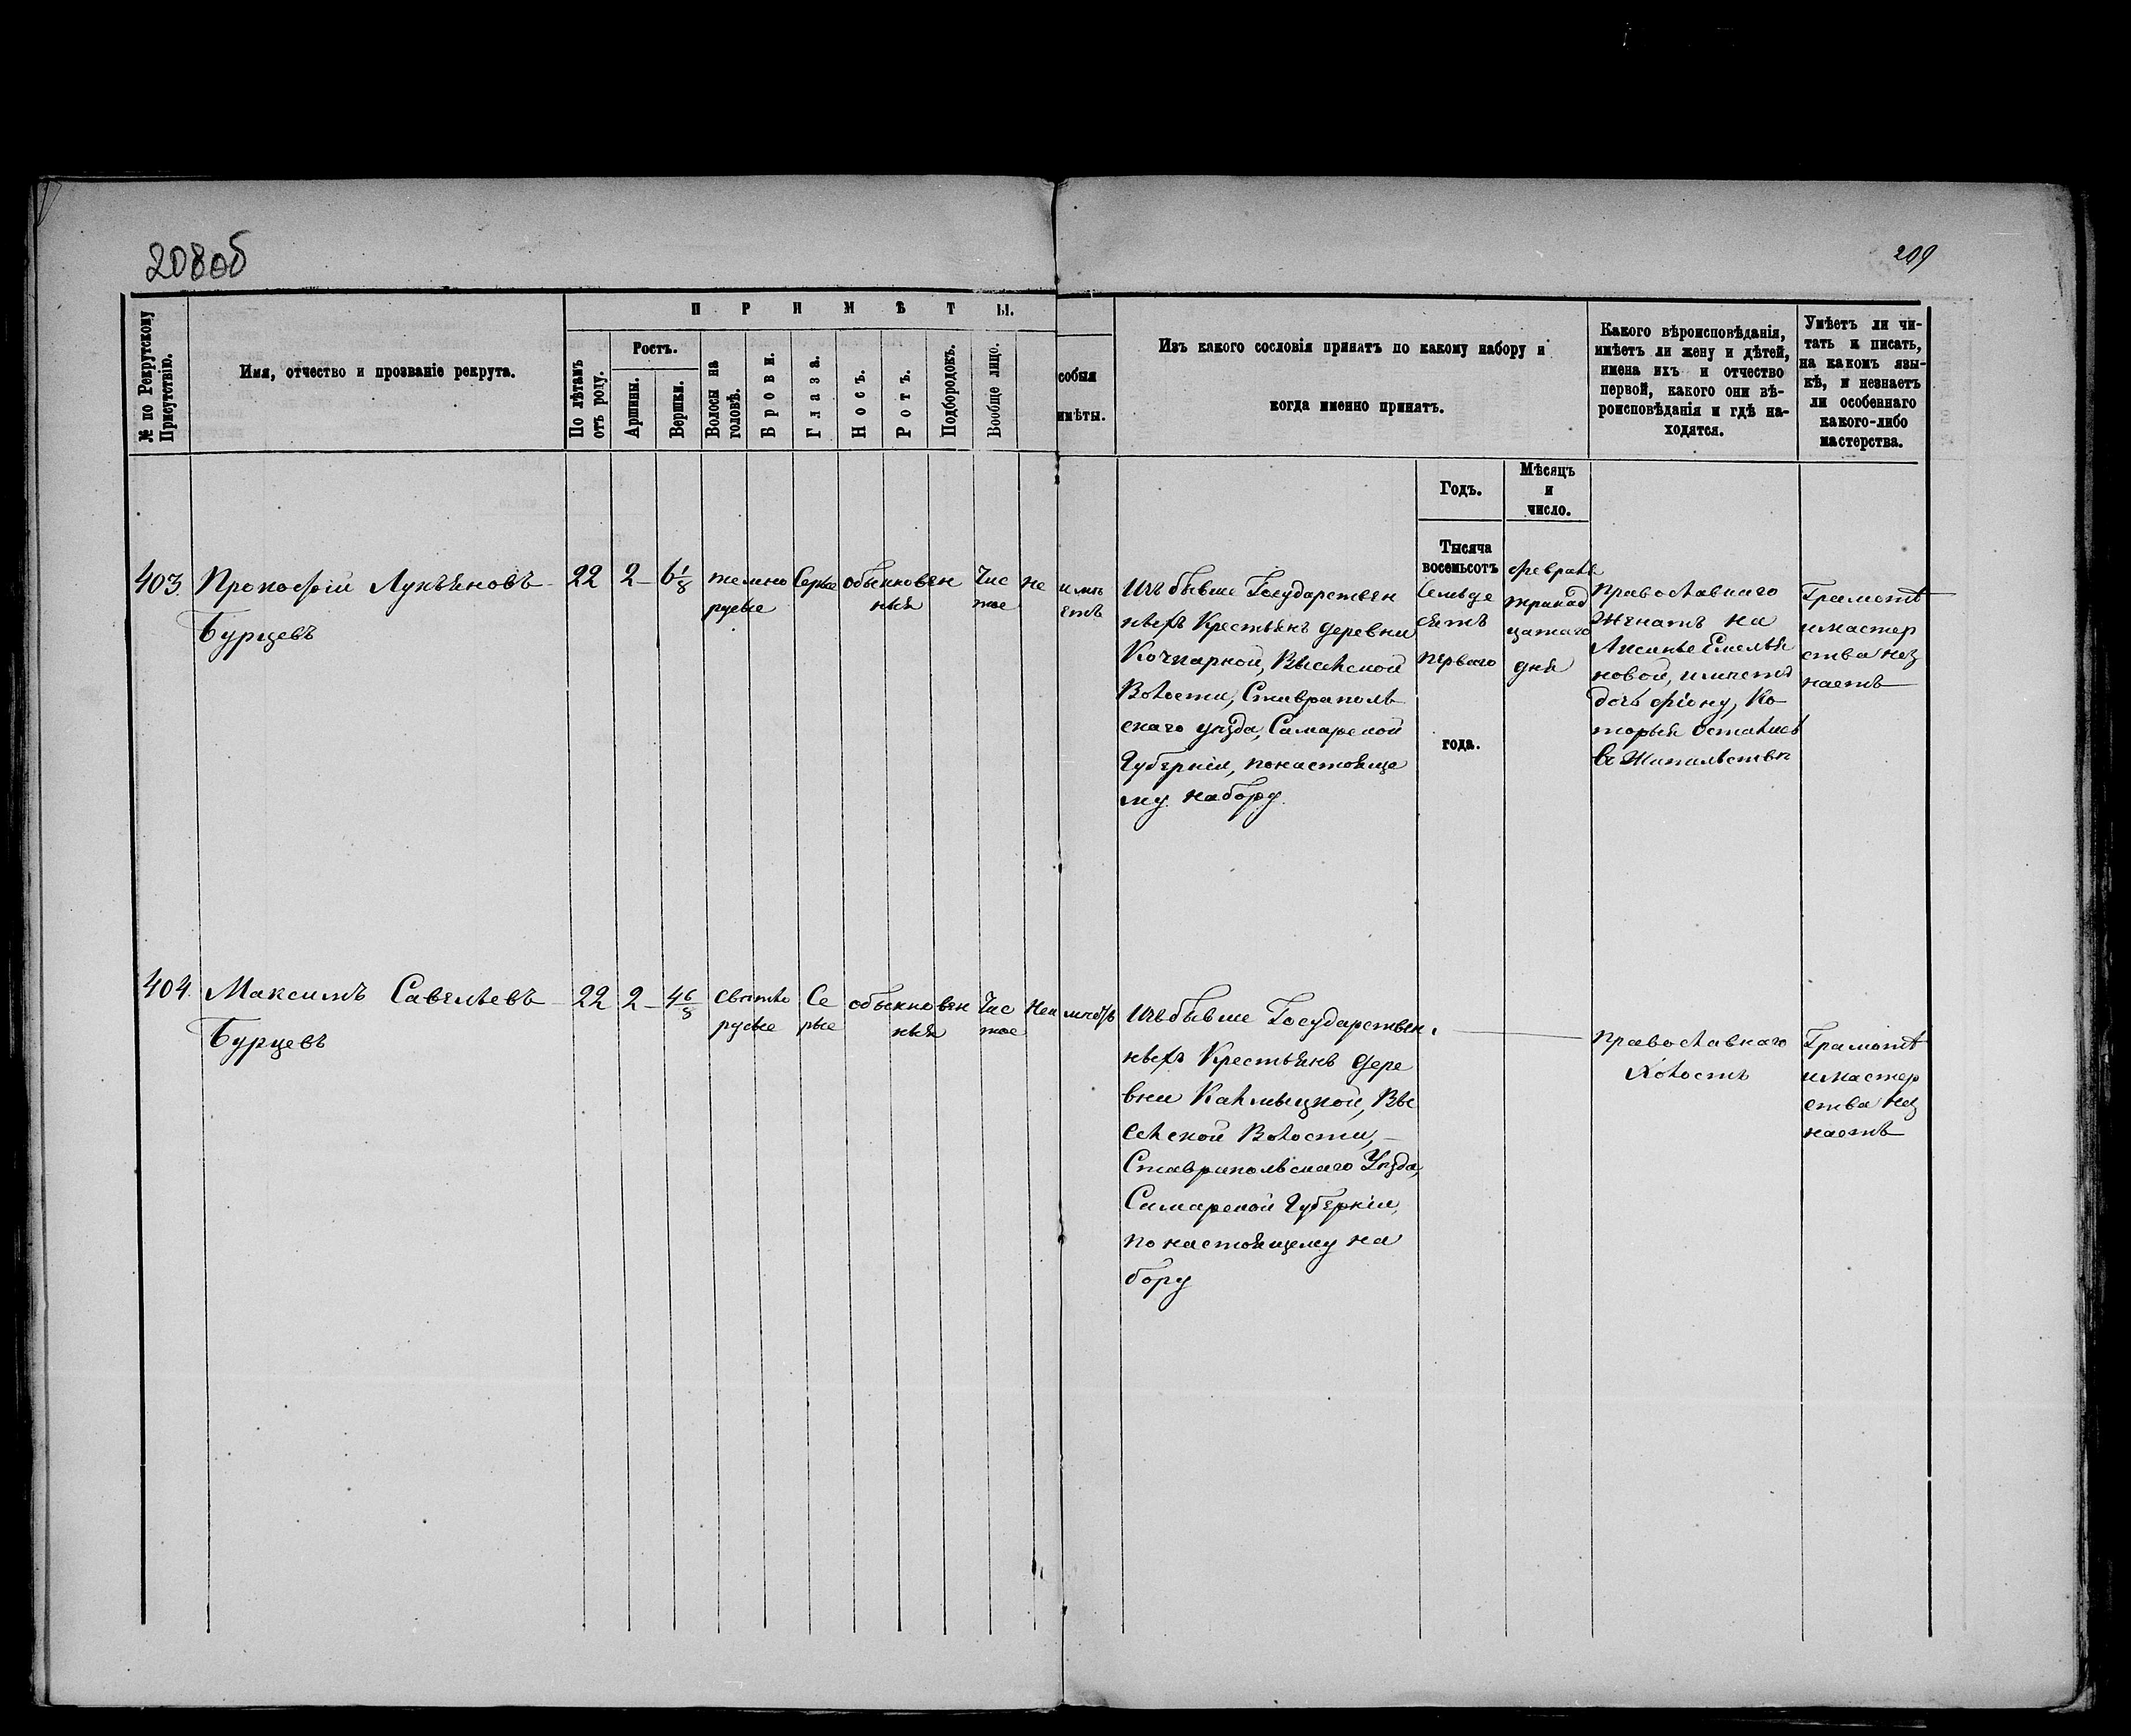 208об
209
№ по Рекрутскому
Присутствію.
Имя, отчество и прозваніе рекрута.
ПРИМѢТЫ.
По лѣтамъ
отъ роду.
Ростъ.
Аршины.
Вершки.
Волосы на
головѣ.
Брови.
Глаза.
Носъ.
Ротъ.
Подбородокъ.
Вообще лицо.
собыя
имѣты.
Изъ какого сословія принятъ по какому набору и
когда именно принятъ.
Годъ.
Мѣсяцъ
и
число.
Какого вѣроисповѣданія,
имѣетъ ли жену и дѣтей,
имена ихъ и отчество
первой, какого они вѣ-
роисповѣданія и гдѣ на-
ходятся.
Умѣетъ ли чи-
тать и писать,
на какомъ язы-
кѣ, и незнаетъ
ли особеннаго
какого-либо
мастерства.
403. Прокофій Лукьяновъ
Бурцевъ
22
2
6 1/8
темно
русые
Серые
обыкновен
ныя
Чис
тое
не
имѣ
етъ
Изъ бывше Государствен
ныхъ Крестьянъ деревни
Кочкарной, Высѣлской
Волости, Ставрополь
скаго уѣзда, Самарской
Губерніи, понастояще
му набору
Тысяча
восемьсотъ
Семьде
сятъ
перваго
года.
февраля
тринад
цатаго
дня
Православнаго
Женатъ на
Аксинье Емелья
новой, имѣетъ
дочь Фіону, Ко
торыя остались
въ Жительствѣ
Грамотѣ
имастер
ства нез
наетъ
404. Максимъ Савельевъ
Бурцевъ
22
2
4 6/8
Светло
русые
Се
рые
обыкновен
ныя
Чис
тое
Неи
меетъ
Изъ бывше Государствен
ныхъ Крестьянъ дере
вни Калмыцкой, Вы
селской Волости,
Ставропольскаго Уѣзда,
Самарской Губерніи,
по настоящему на
бору
Православнаго
Холостъ
Грамотѣ
имастер
ства нез
наетъ